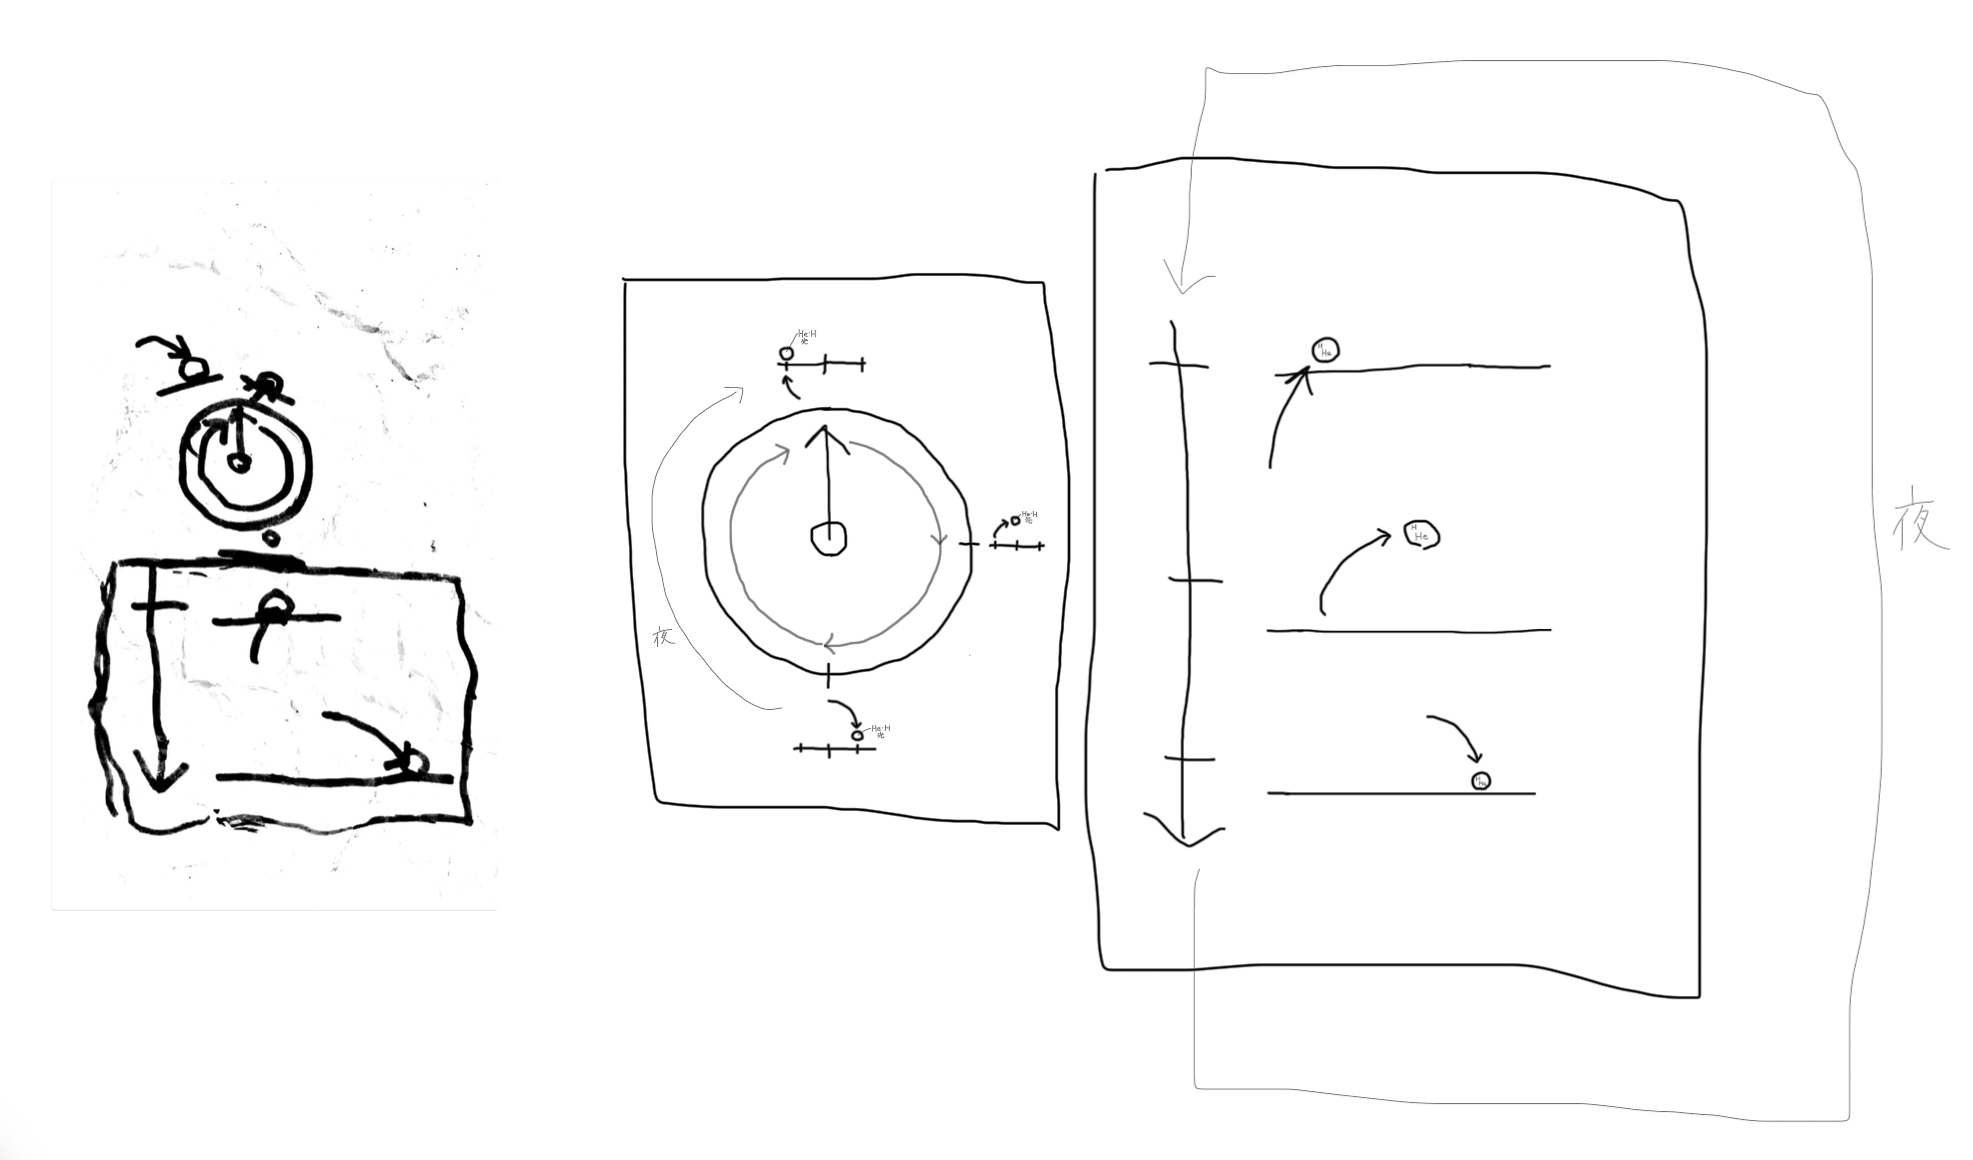 He·H
光
He·H
光
夜
He·H
光
H
He
H
He
H
He
夜